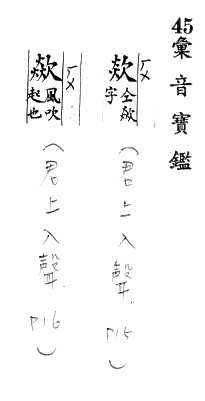 45 彙音寶鑑
欻 仝歘字
(君上入聲. P15)
歘 風吹起也
(君上入聲. P16)